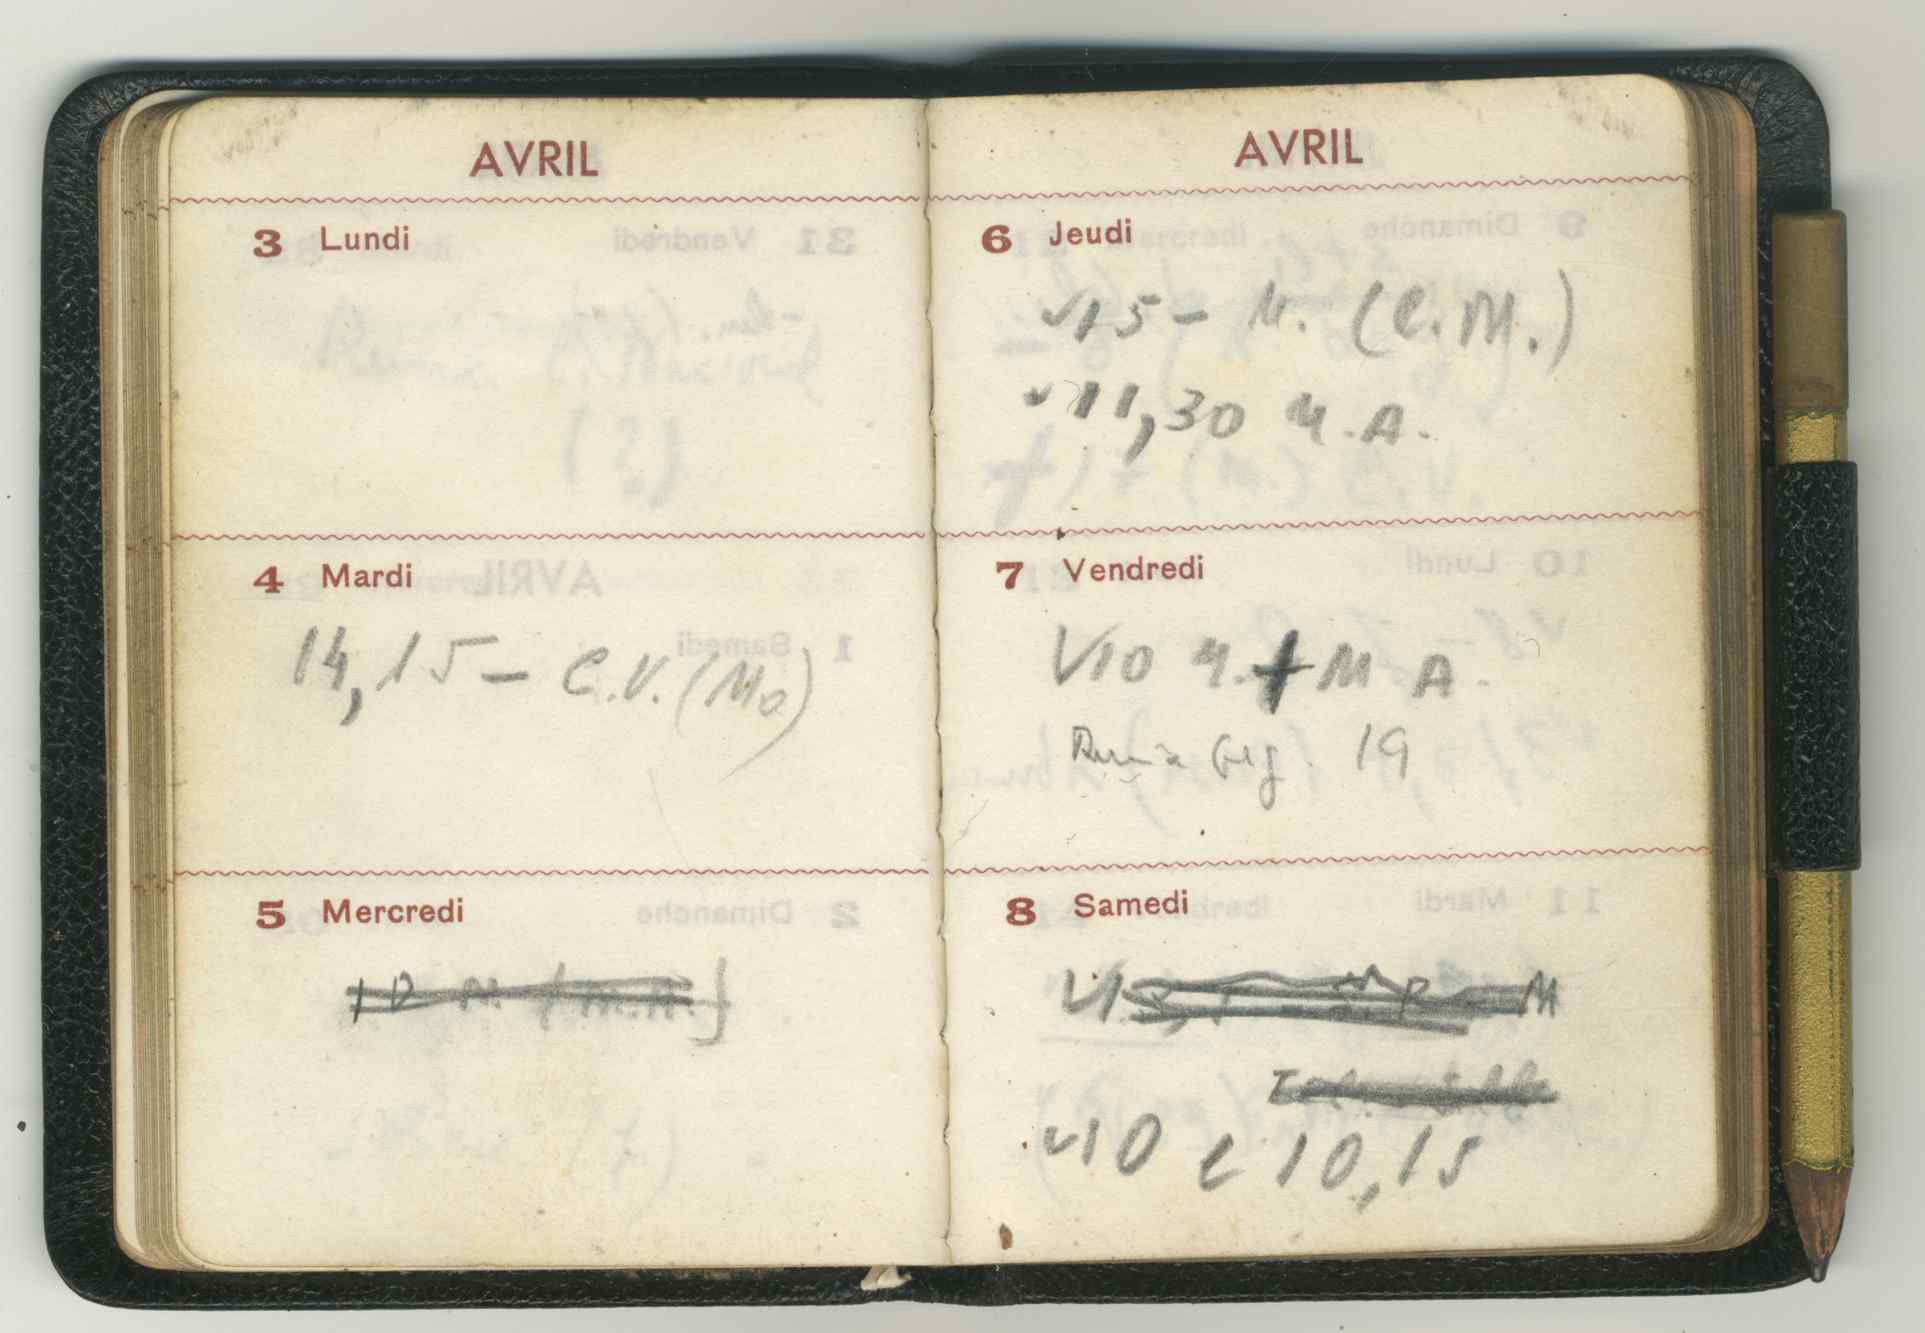 AVRIL
3 Lundi
4 Mardi
14,15 – C.V. (Mo)
5 Mercredi
10 M (M.A.)
AVRIL
6 Jeudi
√15 – M. (C.M.)
√11,30 M.A.
7 Vendredi
√10 M. + M A.
19
8 Samedi
√10 e 10,15